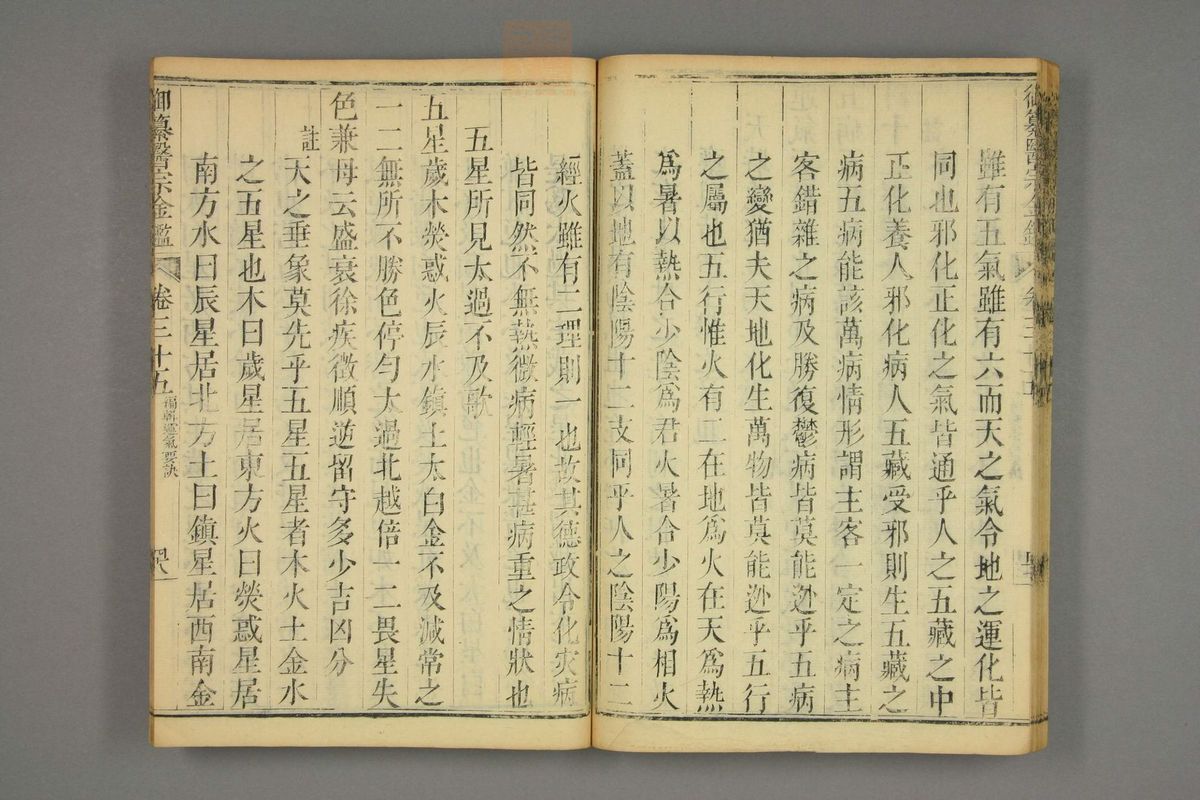 雖有五氣雖有六而天之氣令地之運化皆
同也邪化正化之氣皆通乎人之五藏之中
正化養人邪化病人五藏受邪則生五藏之
病五病能該萬病情形謂主客一定之病主
客錯雜之病及勝復鬱病皆莫能逃乎五病
之變猶夫天地化生萬物皆莫能逃乎五行
之屬也五行惟火有二在地爲火在天爲熱
爲暑以熱合少陰爲君火暑合少陽爲相火
蓋以地有陰陽十二支同乎人之陰陽十二
經火雖有二理則一也故其德政令化灾病
皆同然不無熱微病輕暑甚病重之情狀也
五星所見太過不及歌
五星歲木熒惑火辰水鎮土太白金不及減常之
一二無所不勝色停勻太過北越倍一二畏星失
色兼母云盛衰徐疾徵順逆留守多少吉凶分
註天之垂象莫先乎五星五星者木火土金水
之五星也木曰歲星居東方火曰熒惑星居
南方水曰辰星居北方土曰鎮星居西南金
御纂醫宗金鑑
卷三十五
編輯運氣要訣
四八